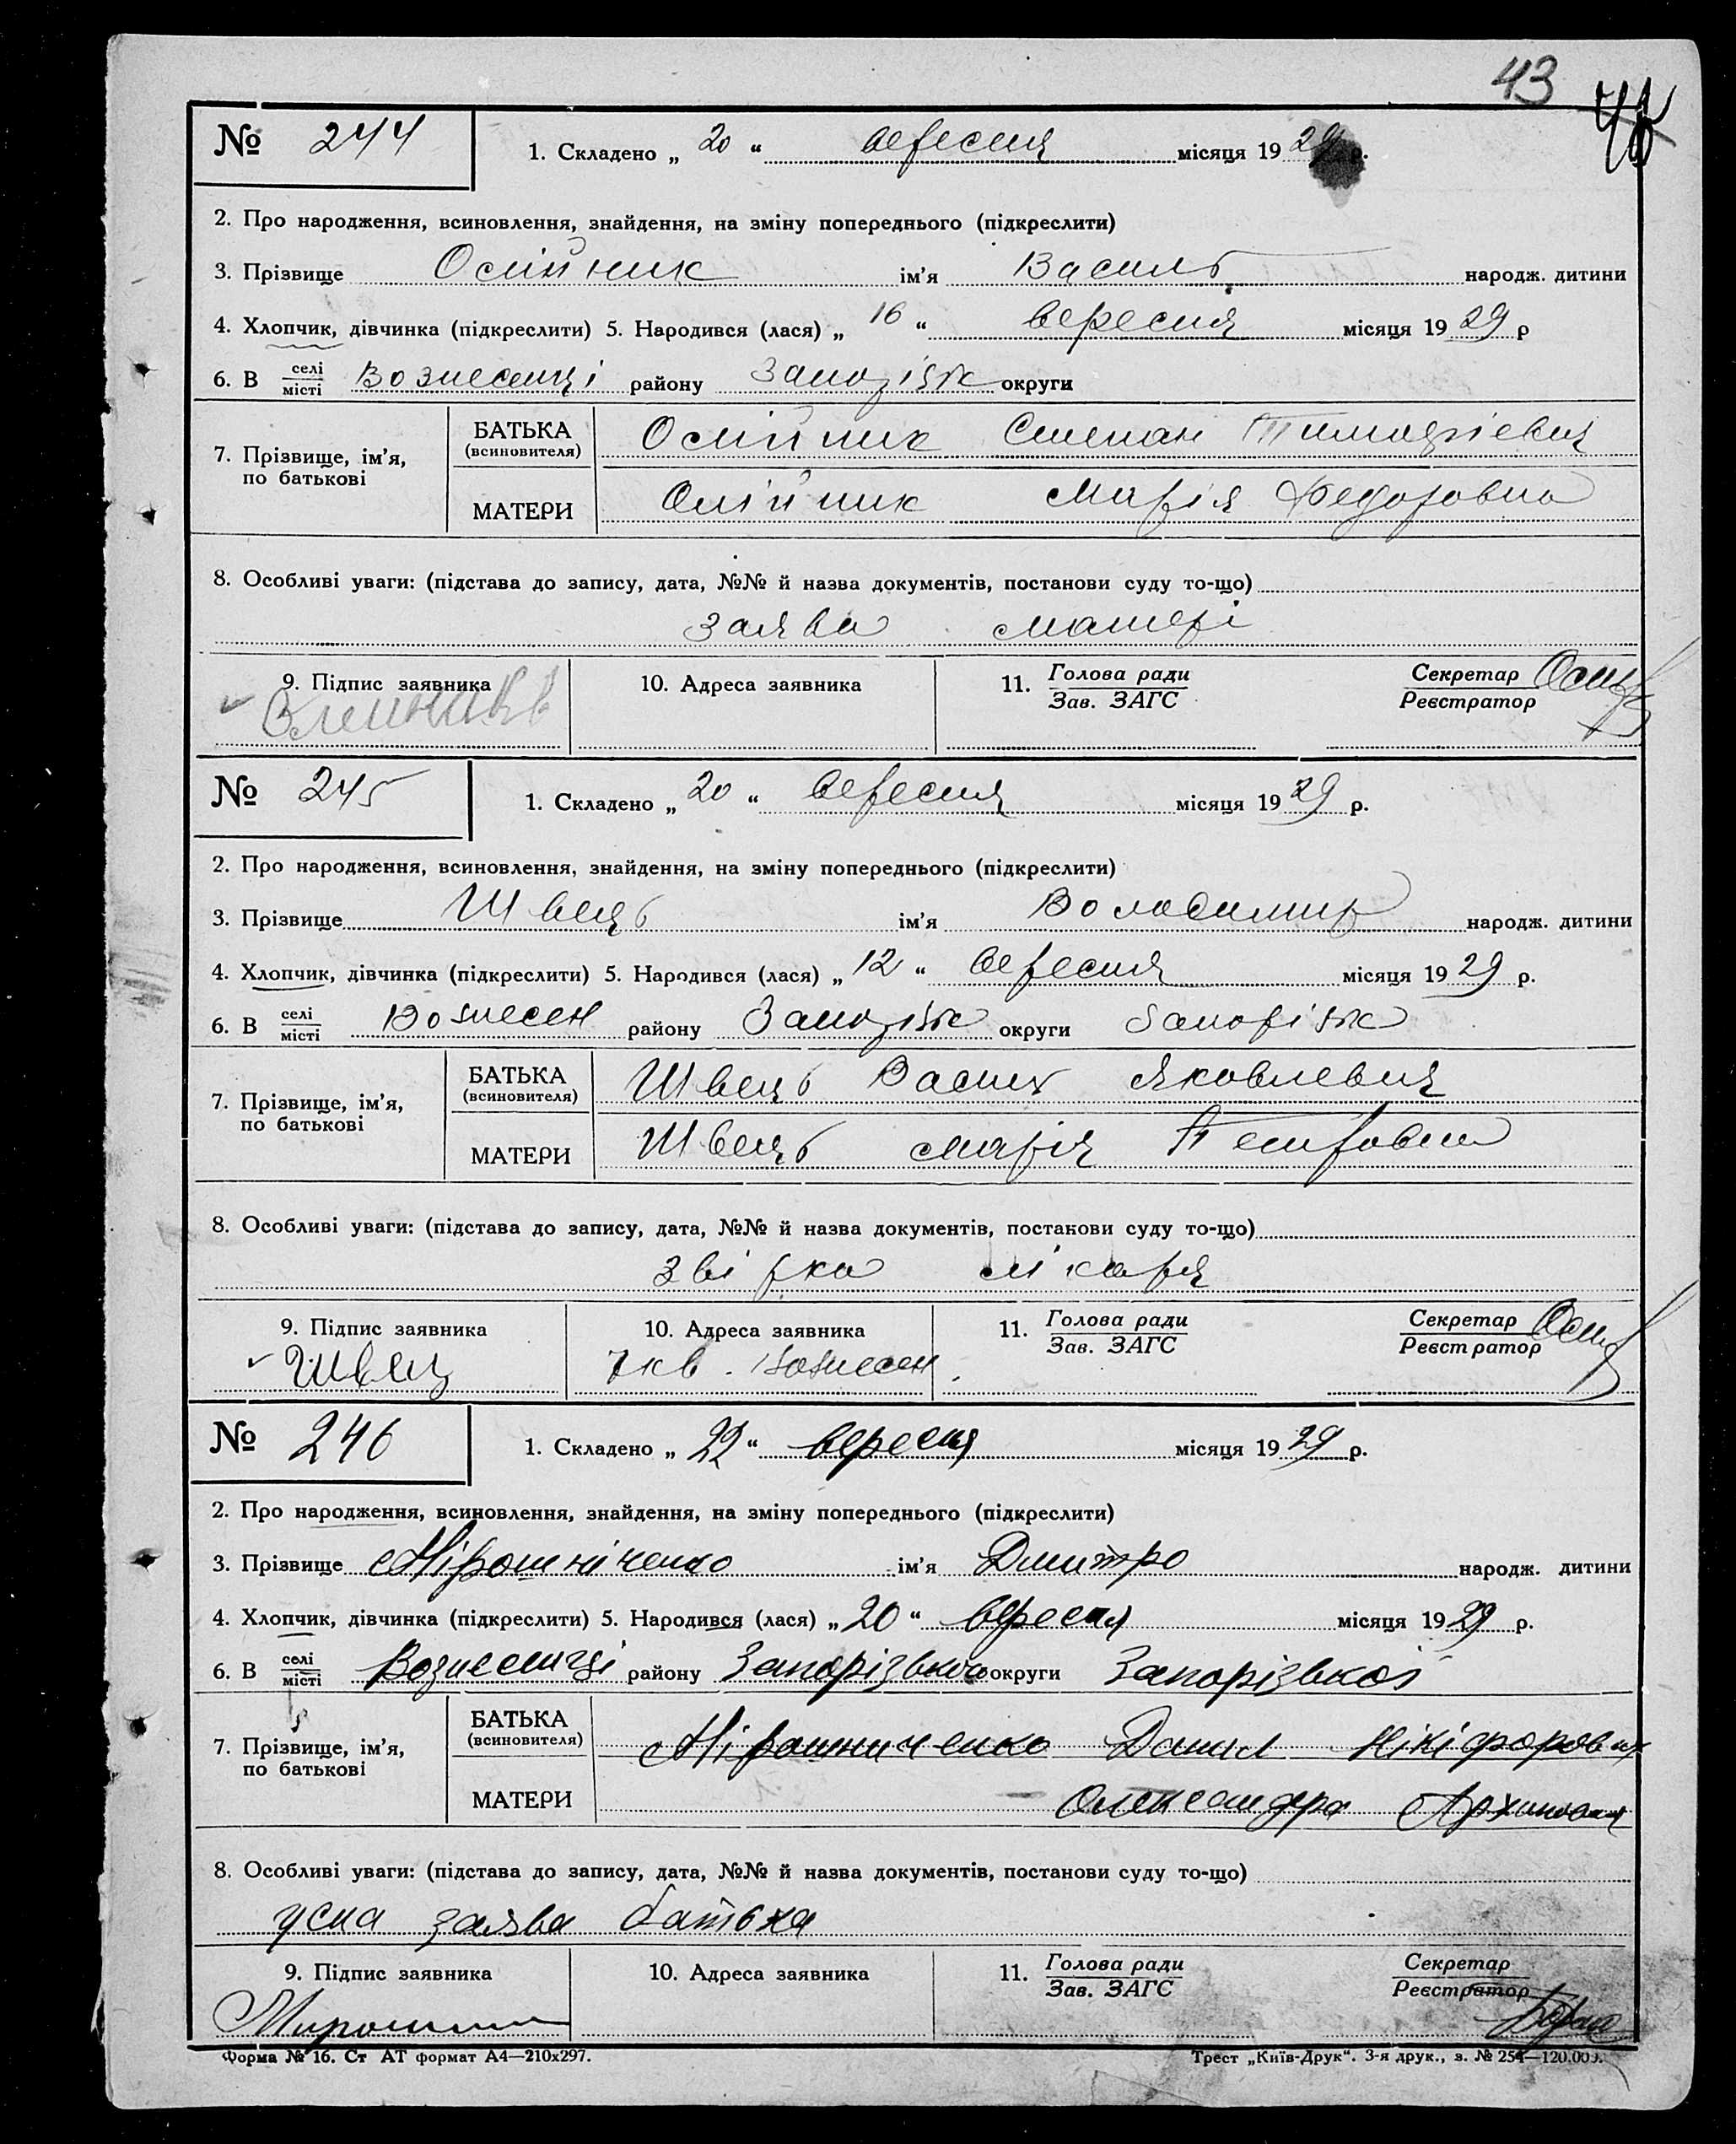 43
№ 244
1. Складено „ 20 “ вересня місяця 19 29 р.
2. Про народження, всиновлення, знайдення, на зміну попереднього (підкреслити)
3. Прізвище Олійник ім’я Василь народж. дитини
4. Хлопчик, дівчинка (підкреслити) 5. Народився (лася) „ 16 “ вересня місяця 19 29 р
6. В селі/місті Вознесенці району Запорізьк округи
7. Прізвище, ім’я, по батькові
БАТЬКА (всиновителя) Олійник Степан Тимофієвич
МАТЕРИ Олійник Марія Федоровна
8. Особливі уваги: (підстава до запису, дата, №№ й назва документів, постанови суду то-що)
заява матері
9. Підпис заявника 10. Адреса заявника 11. Голова ради/Зав. ЗАГС Секретар/Реєстратор
№ 245
1. Складено „ 20 “ вересня місяця 19 29 р.
2. Про народження, всиновлення, знайдення, на зміну попереднього (підкреслити)
3. Прізвище Швець ім’я Володимир народж. дитини
4. Хлопчик, дівчинка (підкреслити) 5. Народився (лася) „ 12 “ вересня місяця 19 29 р.
6. В селі/місті Вознесен району Запорізьк округи Запорізьк
7. Прізвище, ім’я, по батькові
БАТЬКА (всиновителя) Швець Васил Яковлевич
МАТЕРИ Швець Марія Петровна
8. Особливі уваги: (підстава до запису, дата, №№ й назва документів, постанови суду то-що)
звірка лікаря
9. Підпис заявника 10. Адреса заявника 11. Голова ради/Зав. ЗАГС Секретар/Реєстратор
Швец 7 кв. Вознесен.
№ 246
1. Складено „ 22 “ вересня місяця 19 29 р.
2. Про народження, всиновлення, знайдення, на зміну попереднього (підкреслити)
3. Прізвище Мірошніченко ім’я Дмитро народж. дитини
4. Хлопчик, дівчинка (підкреслити) 5. Народився (лася) „ 20 “ вересня місяця 19 29 р.
6. В селі/місті Вознесенці району Запорізького округи Запорізької
7. Прізвище, ім’я, по батькові
БАТЬКА (всиновителя) Мірошниченко Данил Нікіфорович
МАТЕРИ – Олександра Архиповна
8. Особливі уваги: (підстава до запису, дата, №№ й назва документів, постанови суду то-що)
усна заява батька
9. Підпис заявника 10. Адреса заявника 11. Голова ради/Зав. ЗАГС Секретар/Реєстратор
Форма № 16. Ст АТ формат А4—210х297. Трест „Київ-Друк“. 3-я друк., з. № 254—120.000.